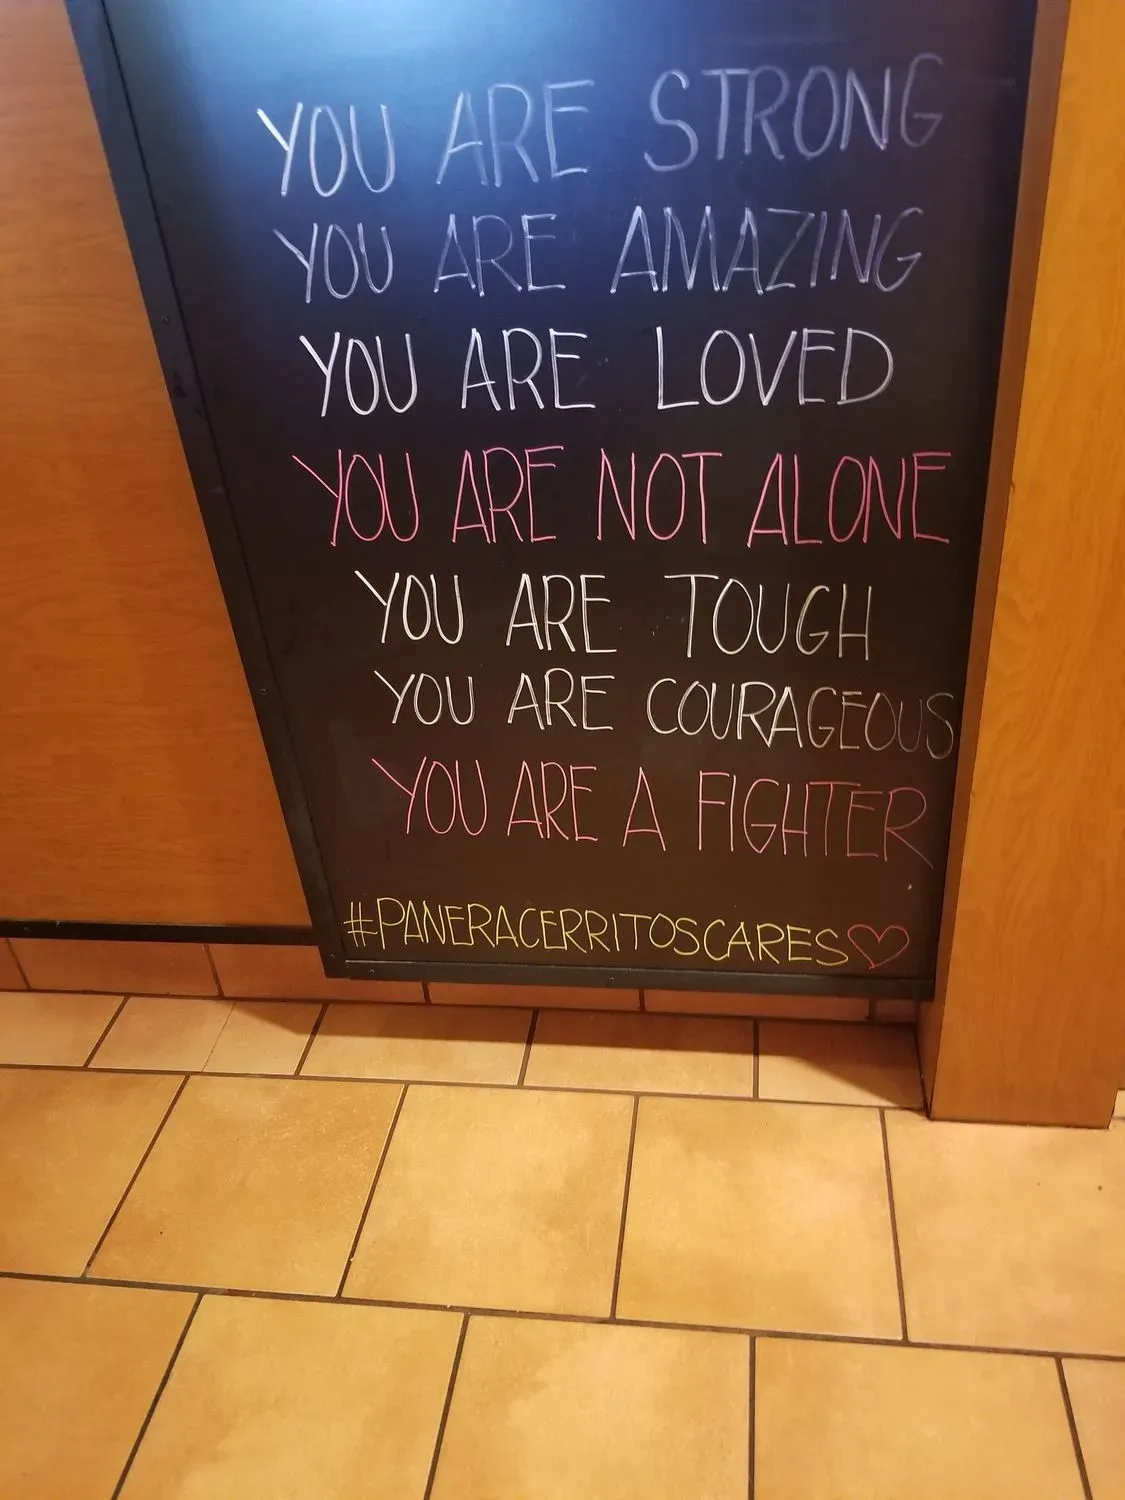 YOU ARE STRONG
YOU ARE AMAZING
YOU ARE LOVED
YOU ARE NOT ALONE
YOU ARE TOUGH
YOU ARE COURAGEOUS
YOU ARE A FIGHTER
#PANERACERRITOSCARES♡